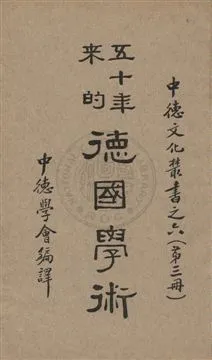 中德文化叢書之六(第三冊)
五十年来的
德國學術
中德學會編譯